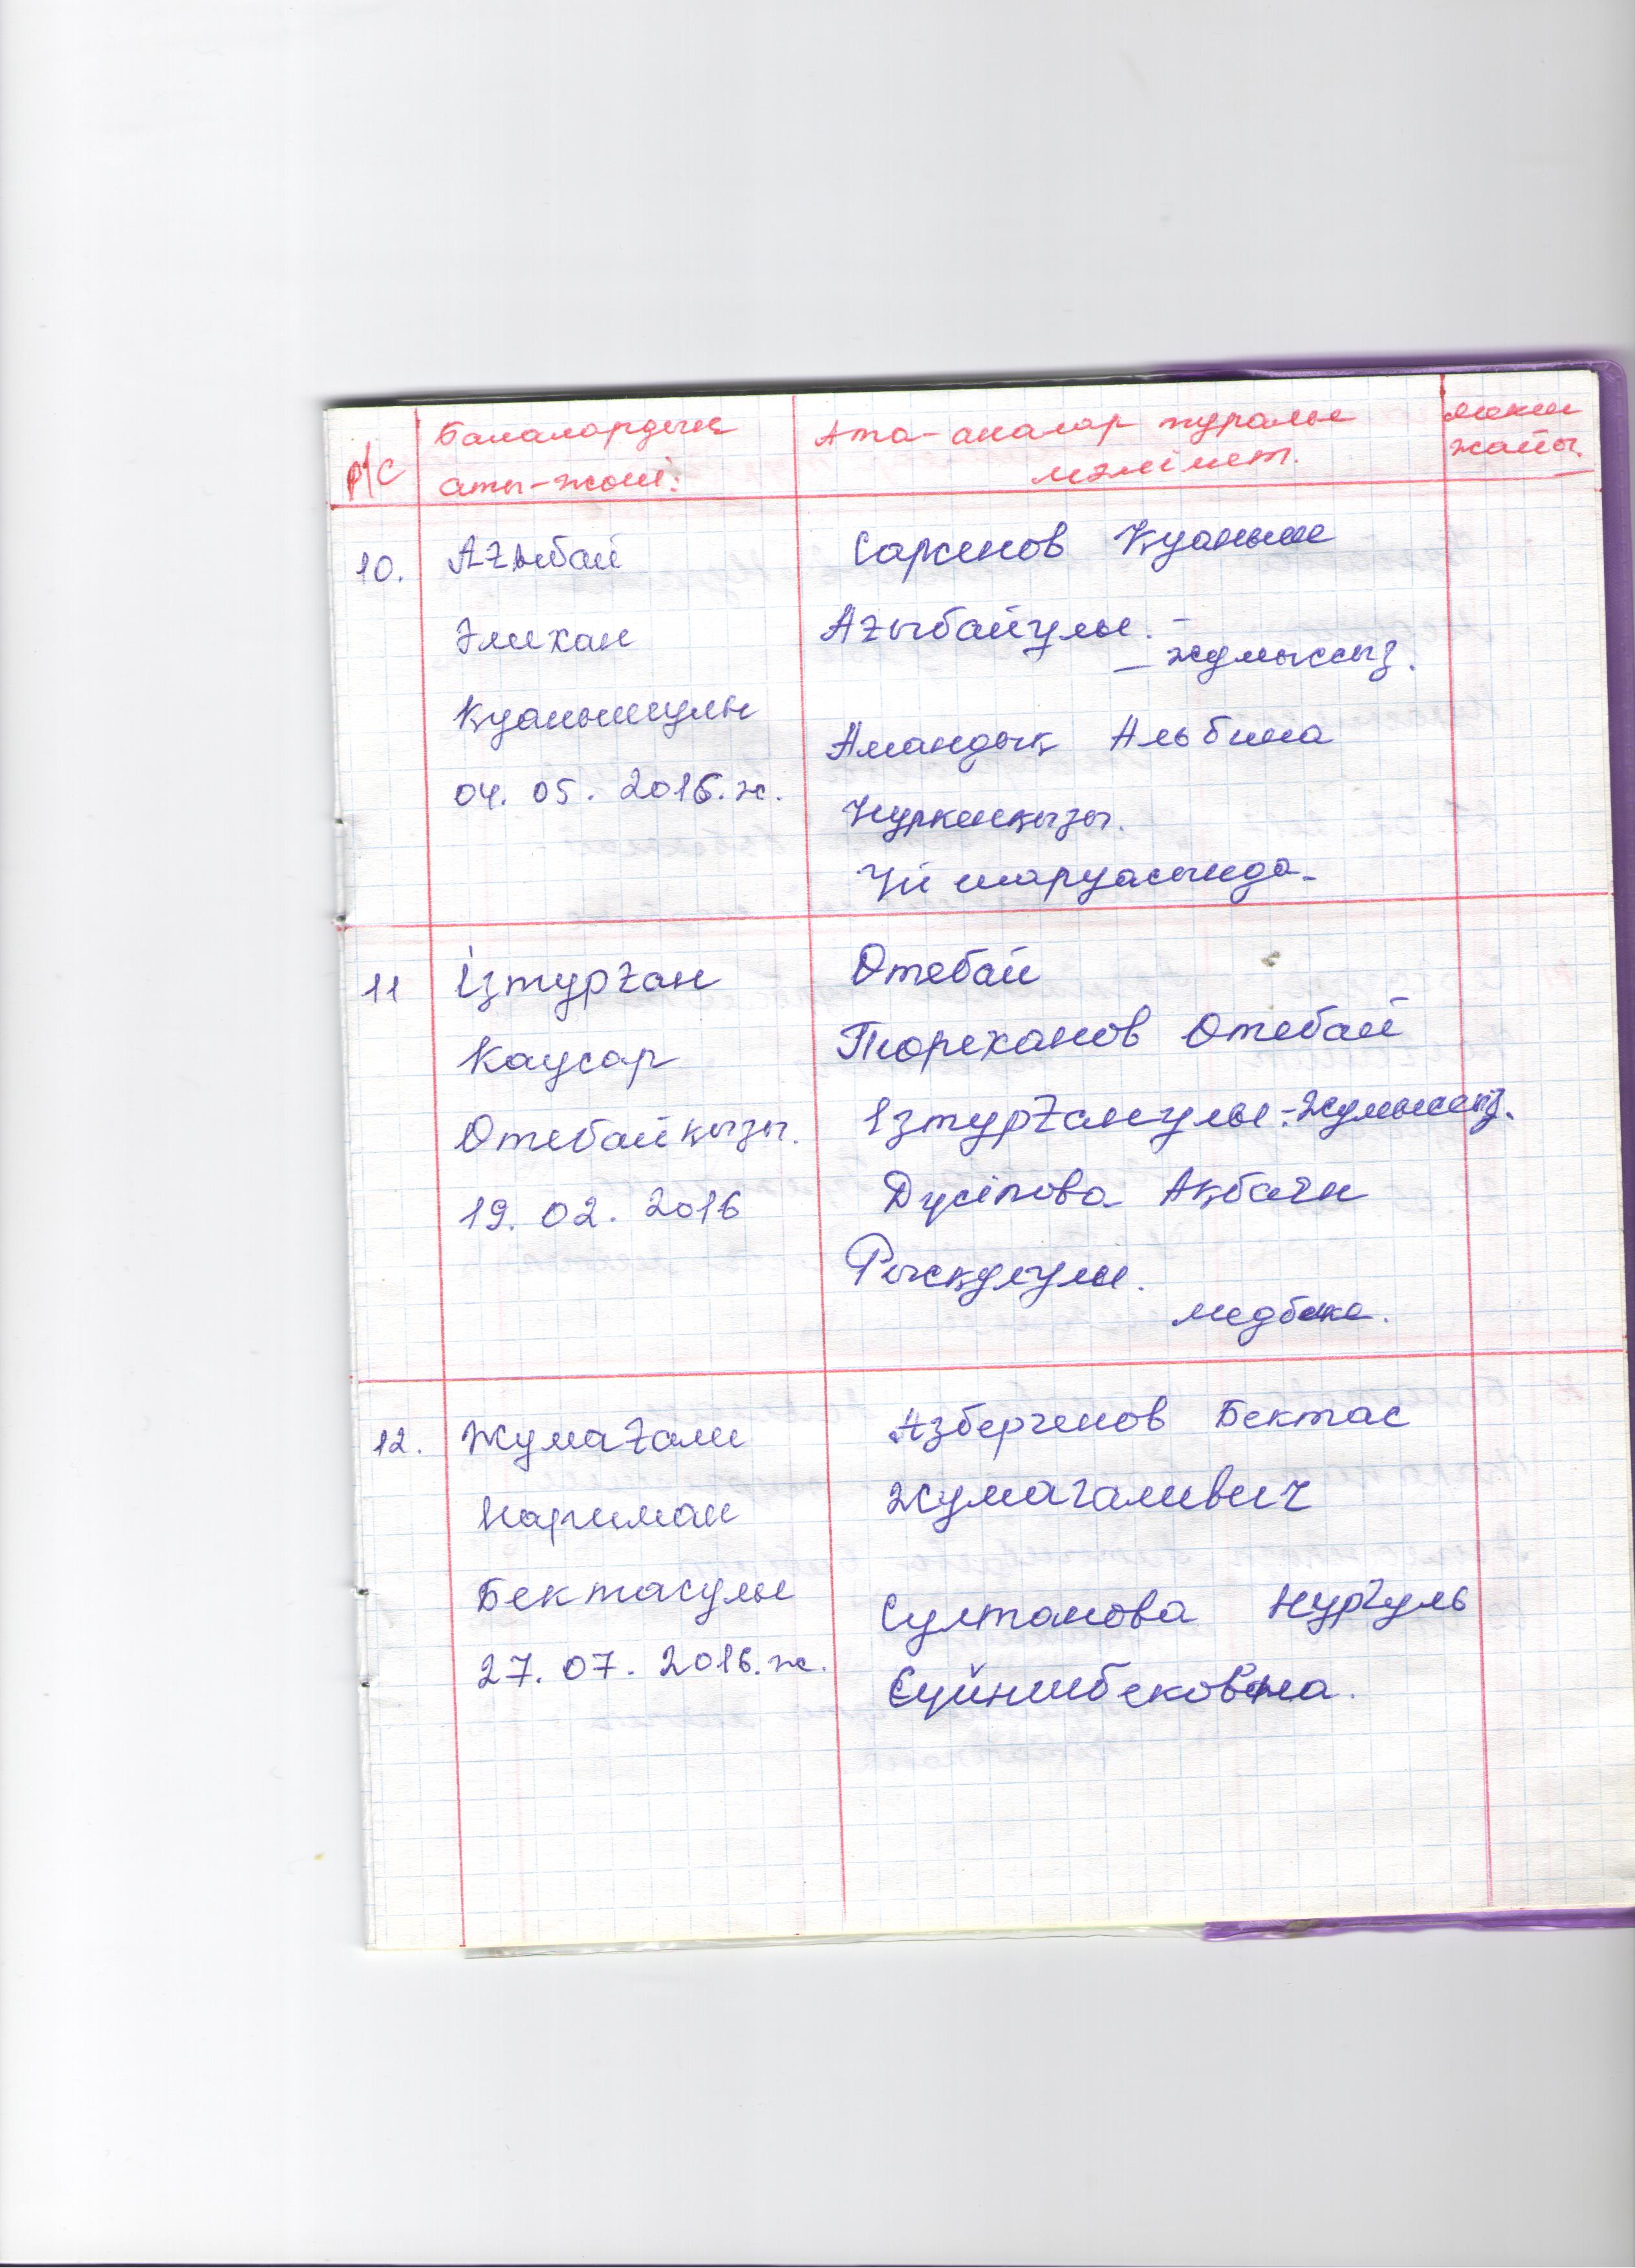 р/с
Балалардың
аты-жөні:
Ата-аналар туралы
мәлімет.
мекен
жайы.
10.
Ағыбай
Әлихан
Қуанышұлы
04. 05. 2016.ж.
Сарсенов Қуаныш
Ағыбайұлы. -
- жұмыссыз.
Амандық Альбина
Нұркенқызы.
Үй шаруасында.
11
Ізтурған
Каусар
Отебайқызы.
19. 02. 2016
Отебай
Тюреханов Отебай
Ізтурғанулы:-жұмыссыз.
Дүсіпова Ақбаян
Рысқұлқызы.
медбике.
12.
Жумағали
Нариман
Бектасулы
27. 07. 2016.ж.
Азбергенов Бектас
Жумагалиевич
Султанова Нургуль
Суйншбековна.